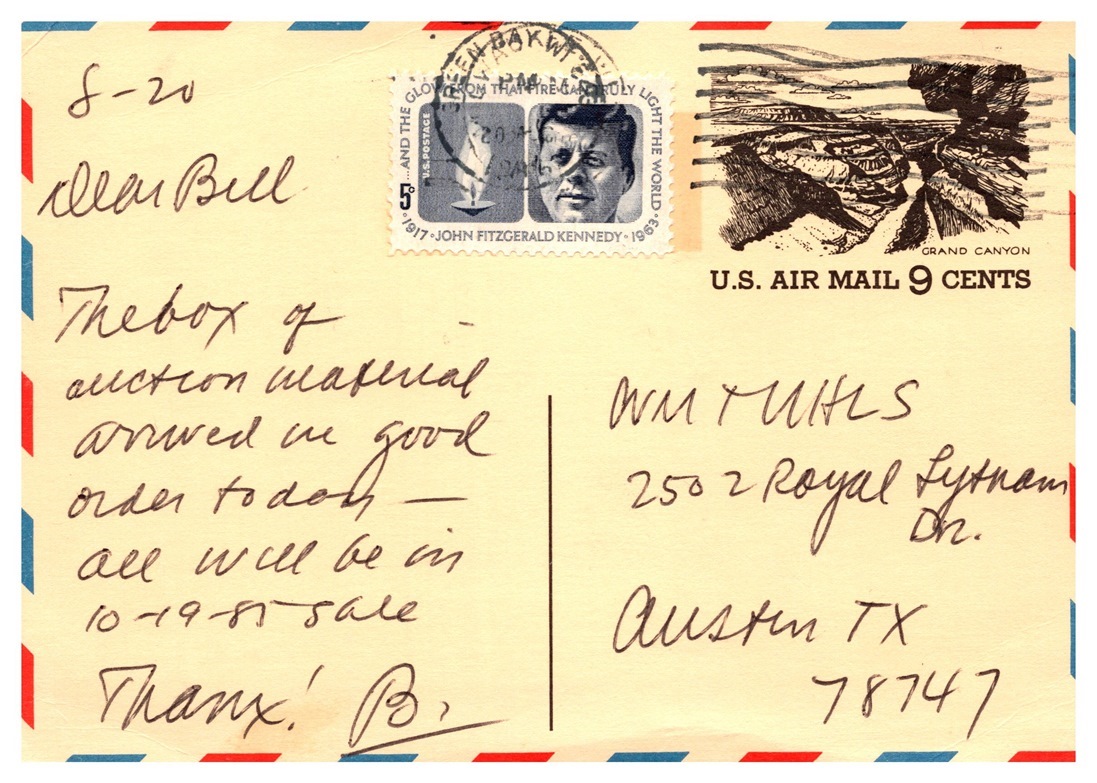 8-20
Dear Bill
The box of
auction material
arrived in good
order today —
all will be in
10-19-85 sale
Thanx! B.
GREEN BAY WI
...AND THE GLOW FROM THAT FIRE CAN TRULY LIGHT THE WORLD
U.S. POSTAGE
5¢
1917 • JOHN FITZGERALD KENNEDY • 1963
GRAND CANYON
U.S. AIR MAIL 9 CENTS
2502 Royal Lytham
Dr.
Austin TX
78747